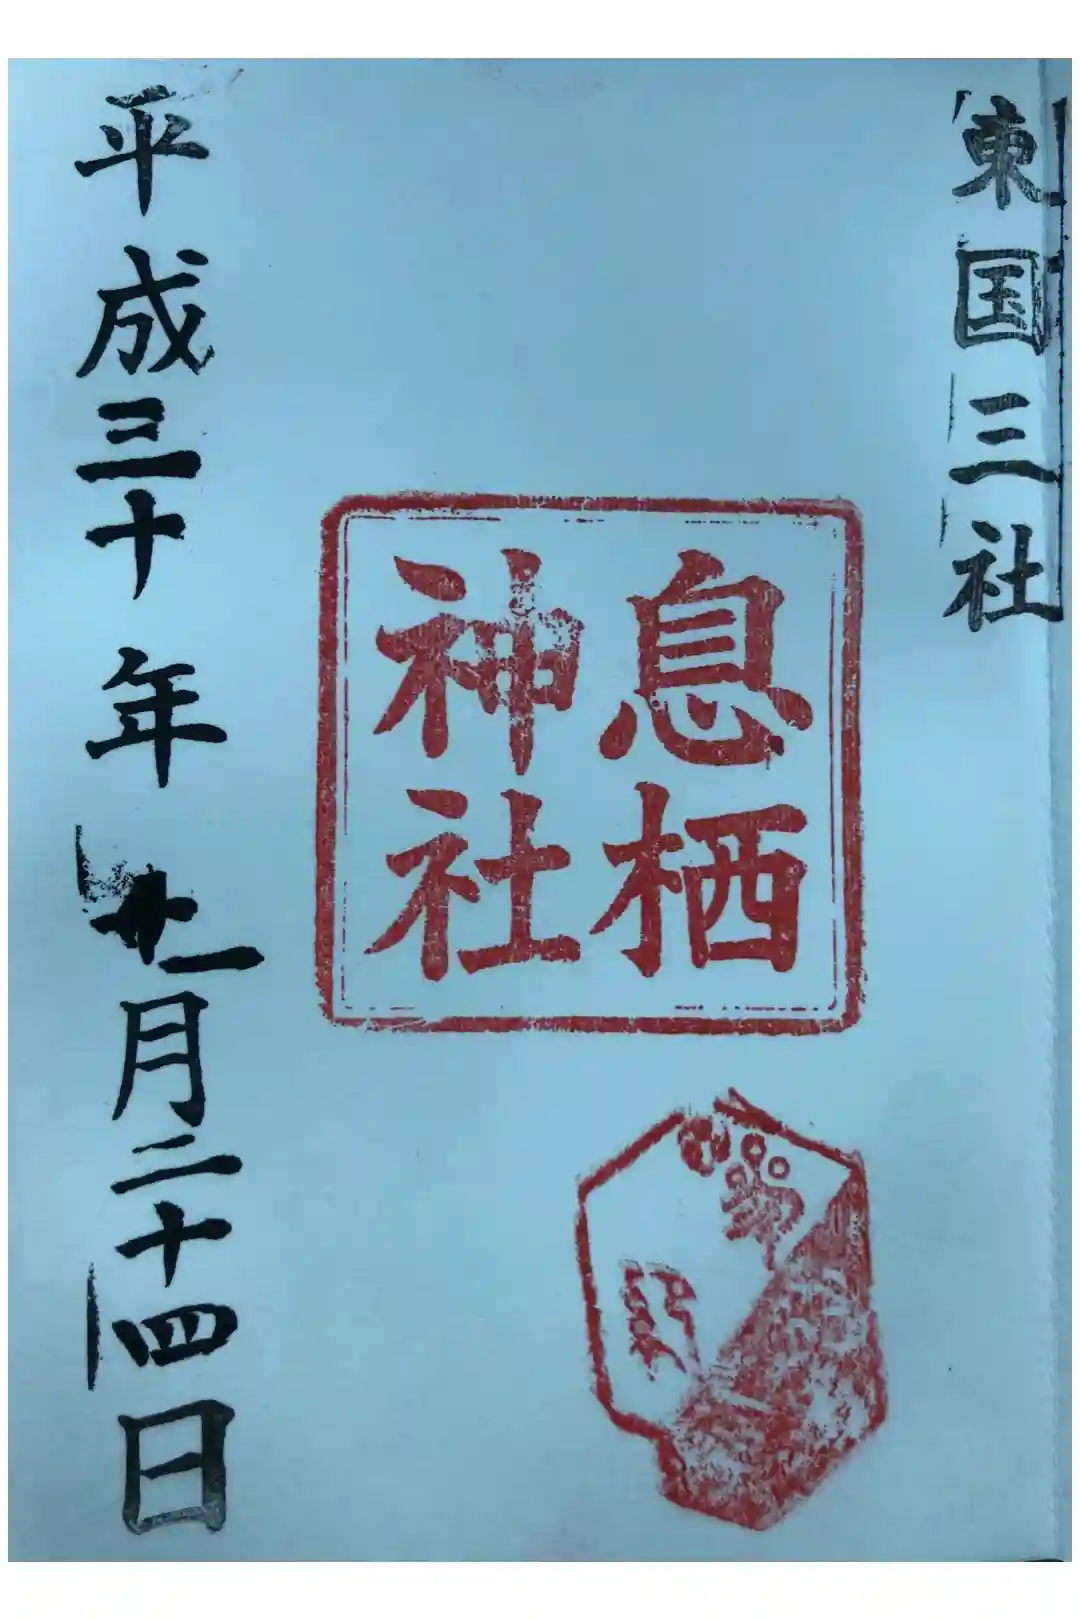 東国三社
息栖
神社
平成三十年十一月二十四日